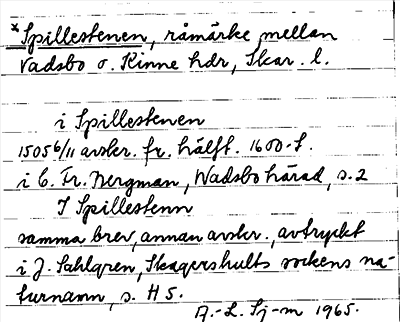 *Spillestenen, råmärke mellan
Vadsbo o. Kinne hdr, Skar. l.
i Spillestenen
1505 6/11 avskr. fr. hälft. 1600-t.
i C. Fr. Bergman, Wadsbo härad, s. 2
I Spillestenn
samma brev, annan avskr., avtryckt
i J. Sahlgren, Skagershults sockens na-
turnamn, s. H 5.
A.-L. Sj-m 1965.